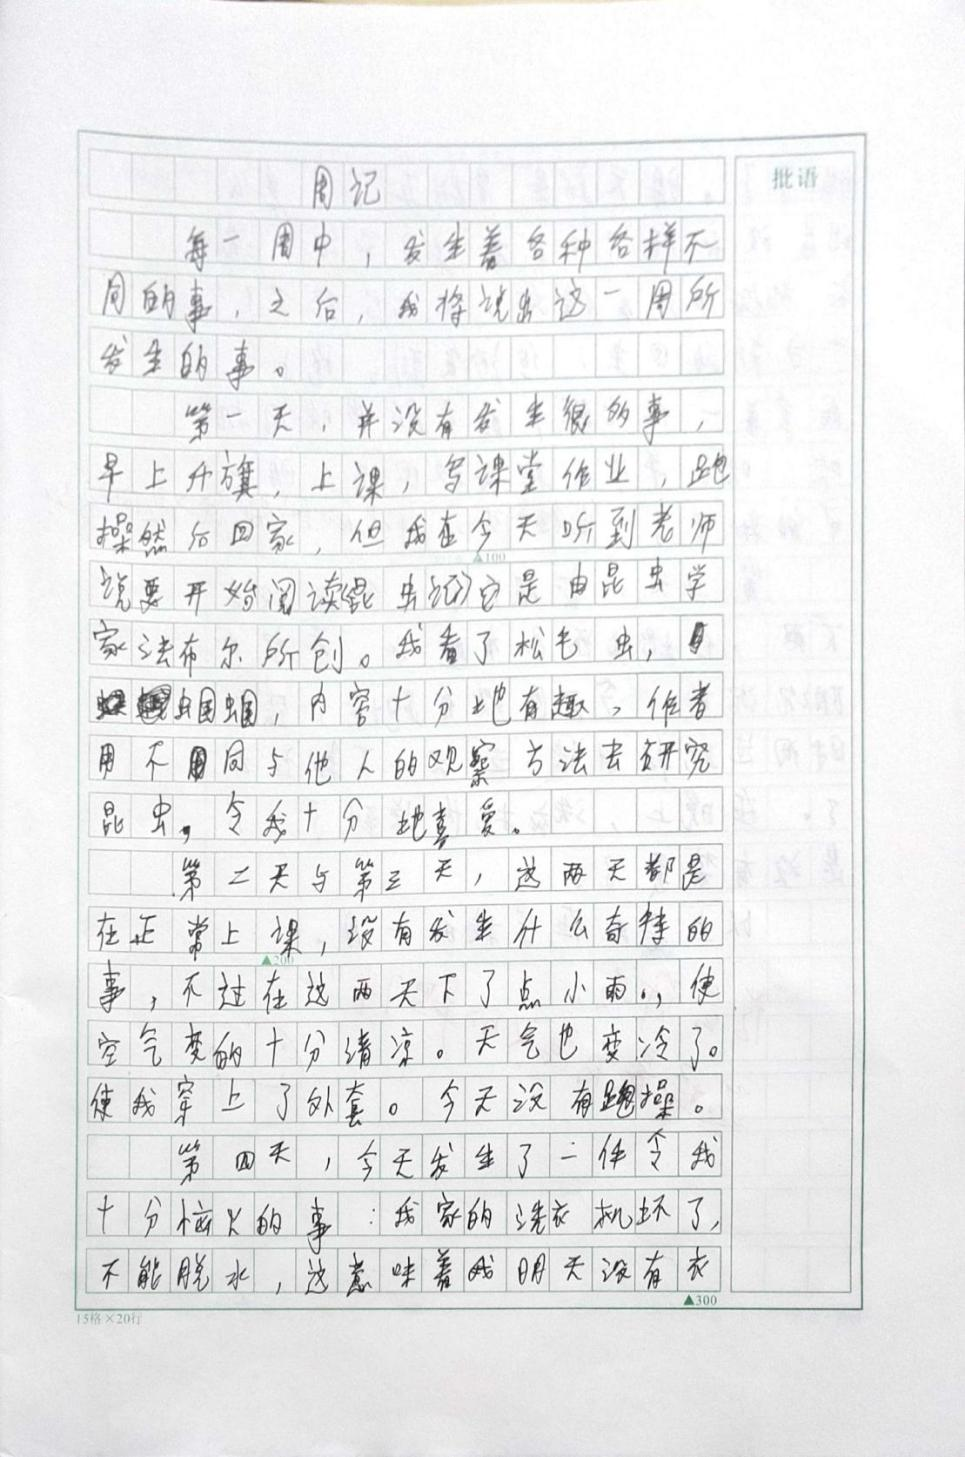 周记
批语
每一周中，发生着各种各样不
同的事，之后，我将说出这一周所
发生的事。
第一天，并没有发生很的事，
早上升旗，上课，写课堂作业，跑
操然后回家，但我在今天听到老师
▲100
说要开始阅读《昆虫记》它是由昆虫学
家法布尔所创。我看了松毛虫，
蝈蝈，内容十分地有趣，作者
用不同与他人的观察方法去研究
昆虫，令我十分地喜爱。
第二天与第三天，这两天都是
在正常上课，没有发生什么奇特的
▲200
事，不过在这两天下了点小雨，使
空气变的十分清凉。天气也变冷了。
使我穿上了外套。今天没有跑操。
第四天，今天发生了一件令我
十分恼火的事：我家的洗衣机坏了，
不能脱水，这意味着我明天没有衣
▲300
15格×20行